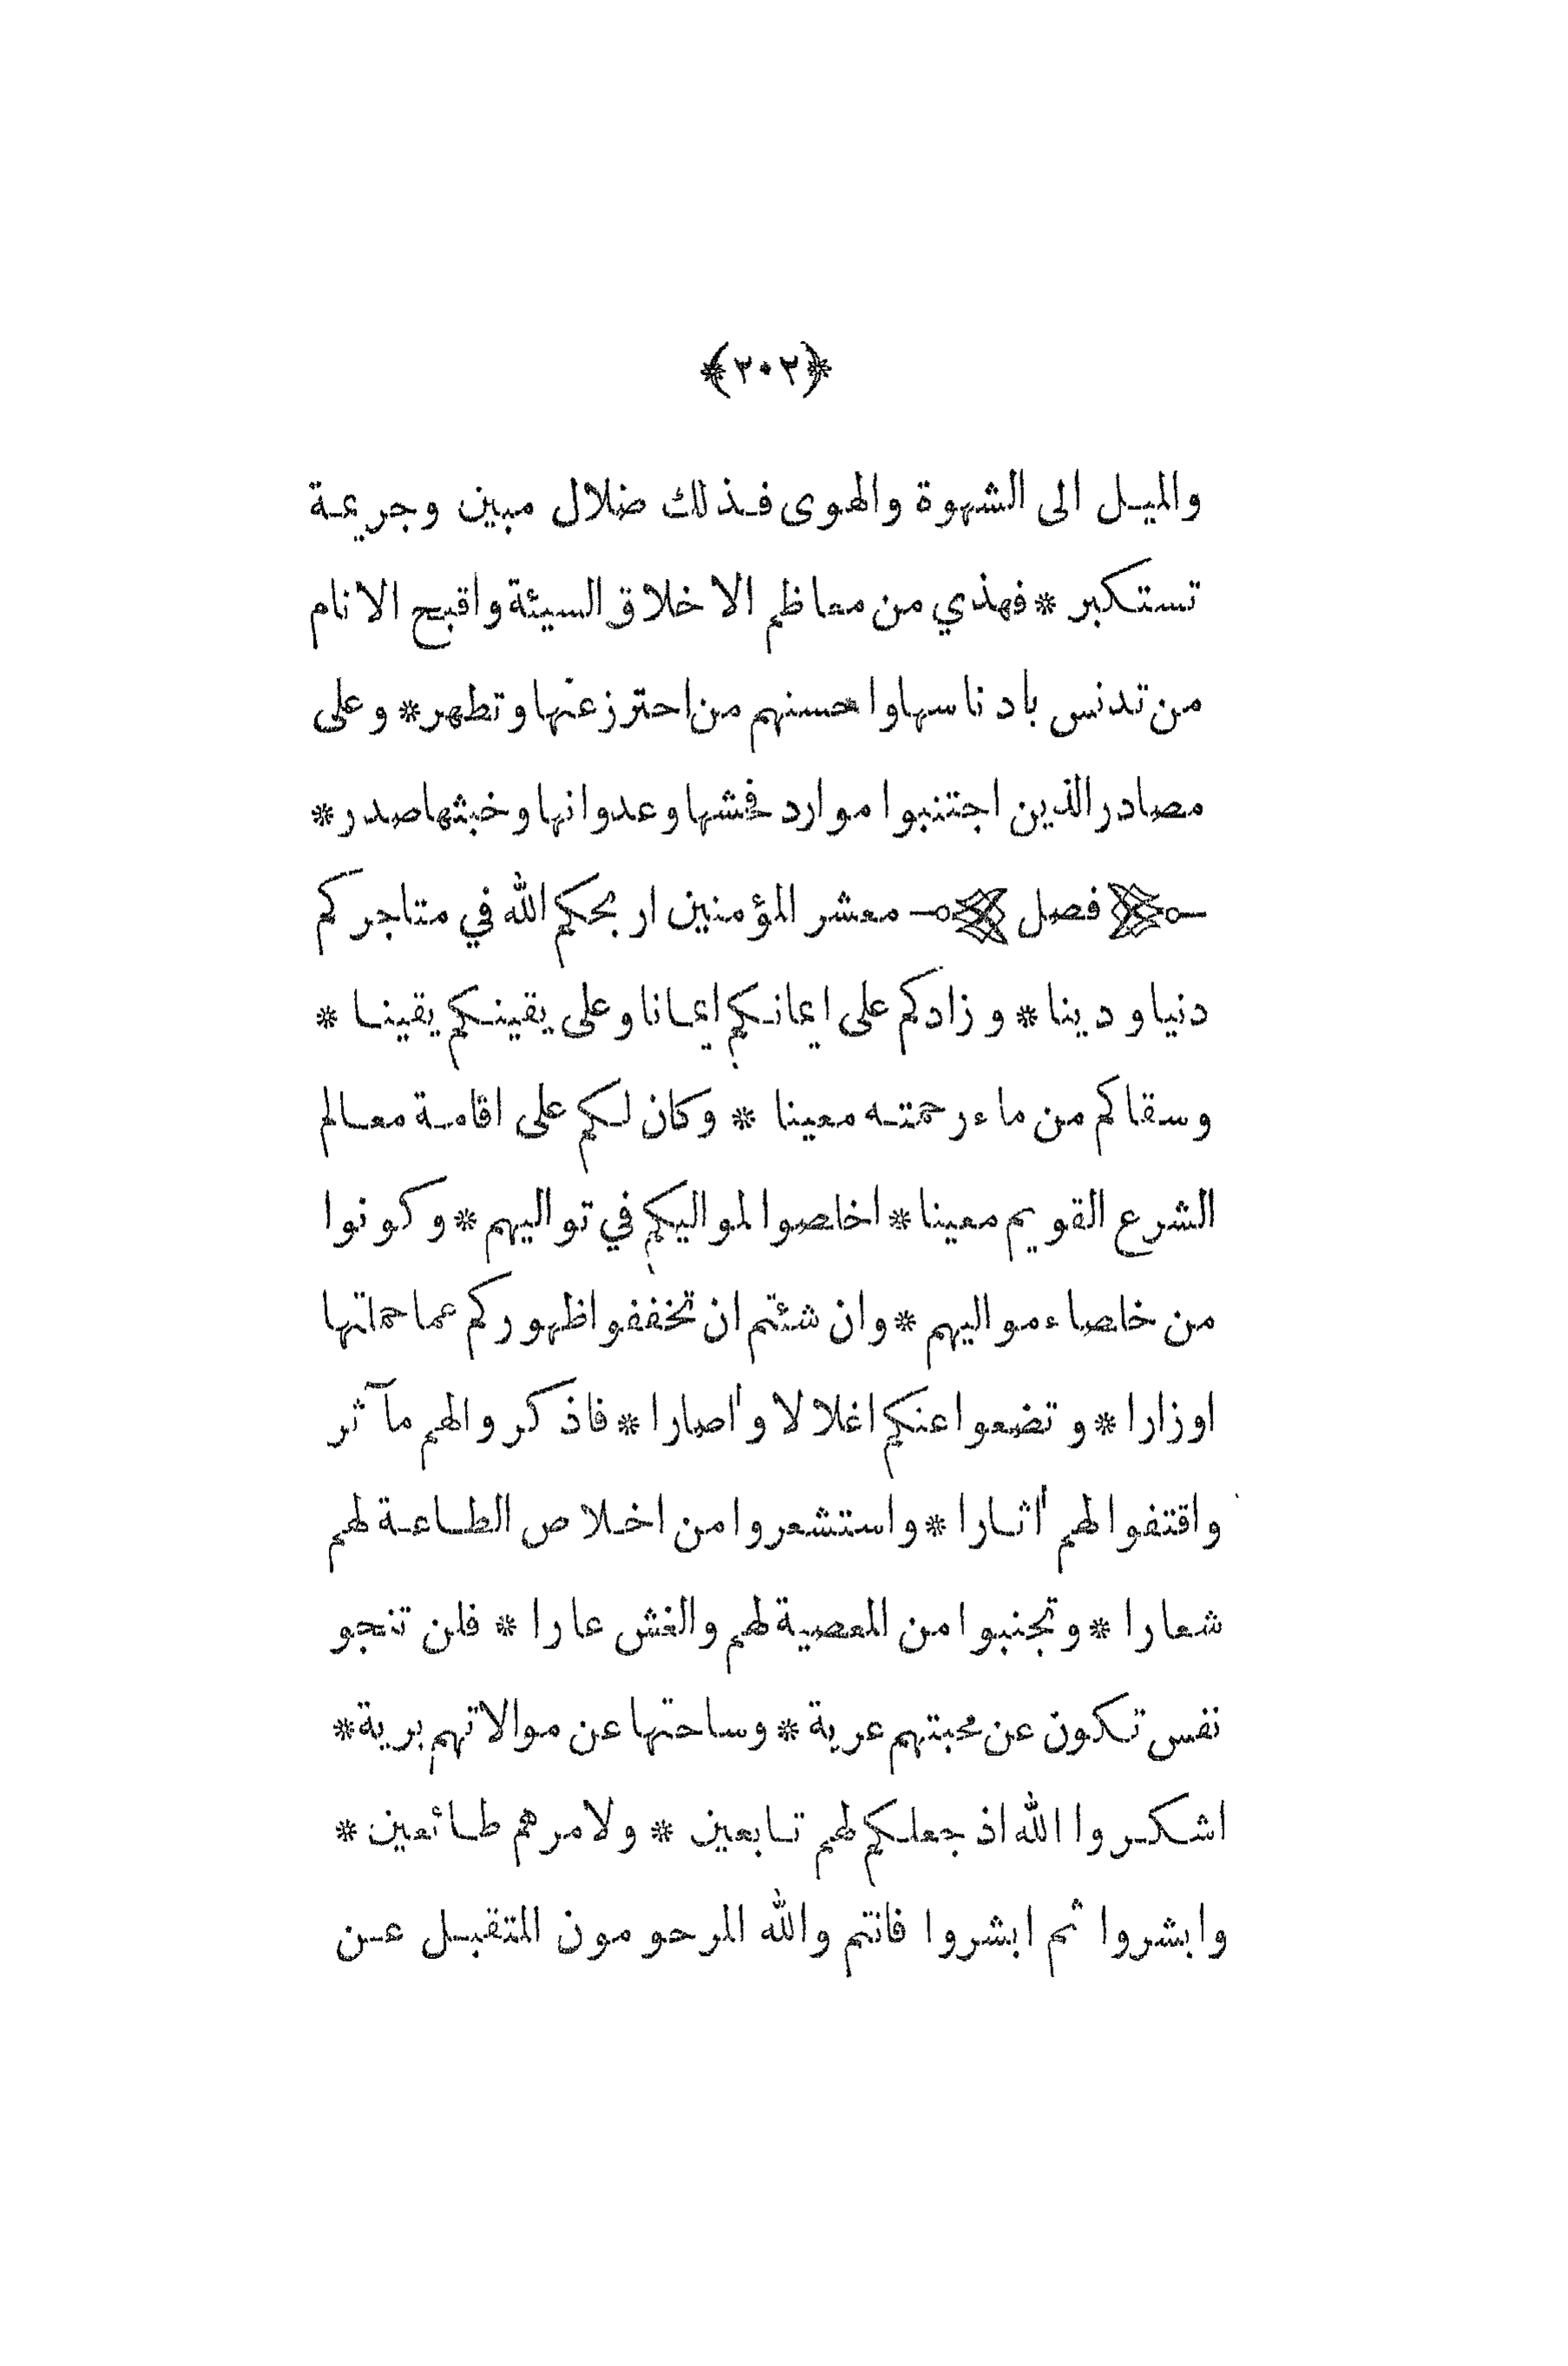 ﴿٢٠٢﴾
والميل الى الشهوة والهوى فذلك ضلال مبين وجريمة
تستكبر * فهذي من معاظم الاخلاق السيئة واقبح الانام
من تدنس بادناسها واحسنهم من احترز عنها وتطهر * وعلى
مصادر الذين اجتنبوا موارد فحشها وعدوانها وخبثها صدر *
فصل معشر المؤمنين اربحكم الله في متاجركم
دنيا ودينا * وزادكم على ايمانكم ايمانا وعلى يقينكم يقينا *
وسقاكم من ماء رحمته معينا * وكان لكم على اقامة معالم
الشرع القويم معينا * اخلصوا لمواليكم في تواليهم * وكونوا
من خلصاء مواليهم * وان شئتم ان تخففوا ظهوركم عما حملتها
اوزارا * وتضعوا عنكم اغلالا وأصارا * فاذكروا لهم مآثر
واقتفوا لهم أثارا * واستشعروا من اخلاص الطاعة لهم
شعارا * وتجنبوا من المعصية لهم والغش عارا * فلن تنجو
نفس تكون عن محبتهم عرية * وساحتها عن موالاتهم برية *
اشكروا الله اذ جعلكم لهم تابعين * ولامرهم طائعين *
وابشروا ثم ابشروا فانتم والله المرحومون المتقبل عن